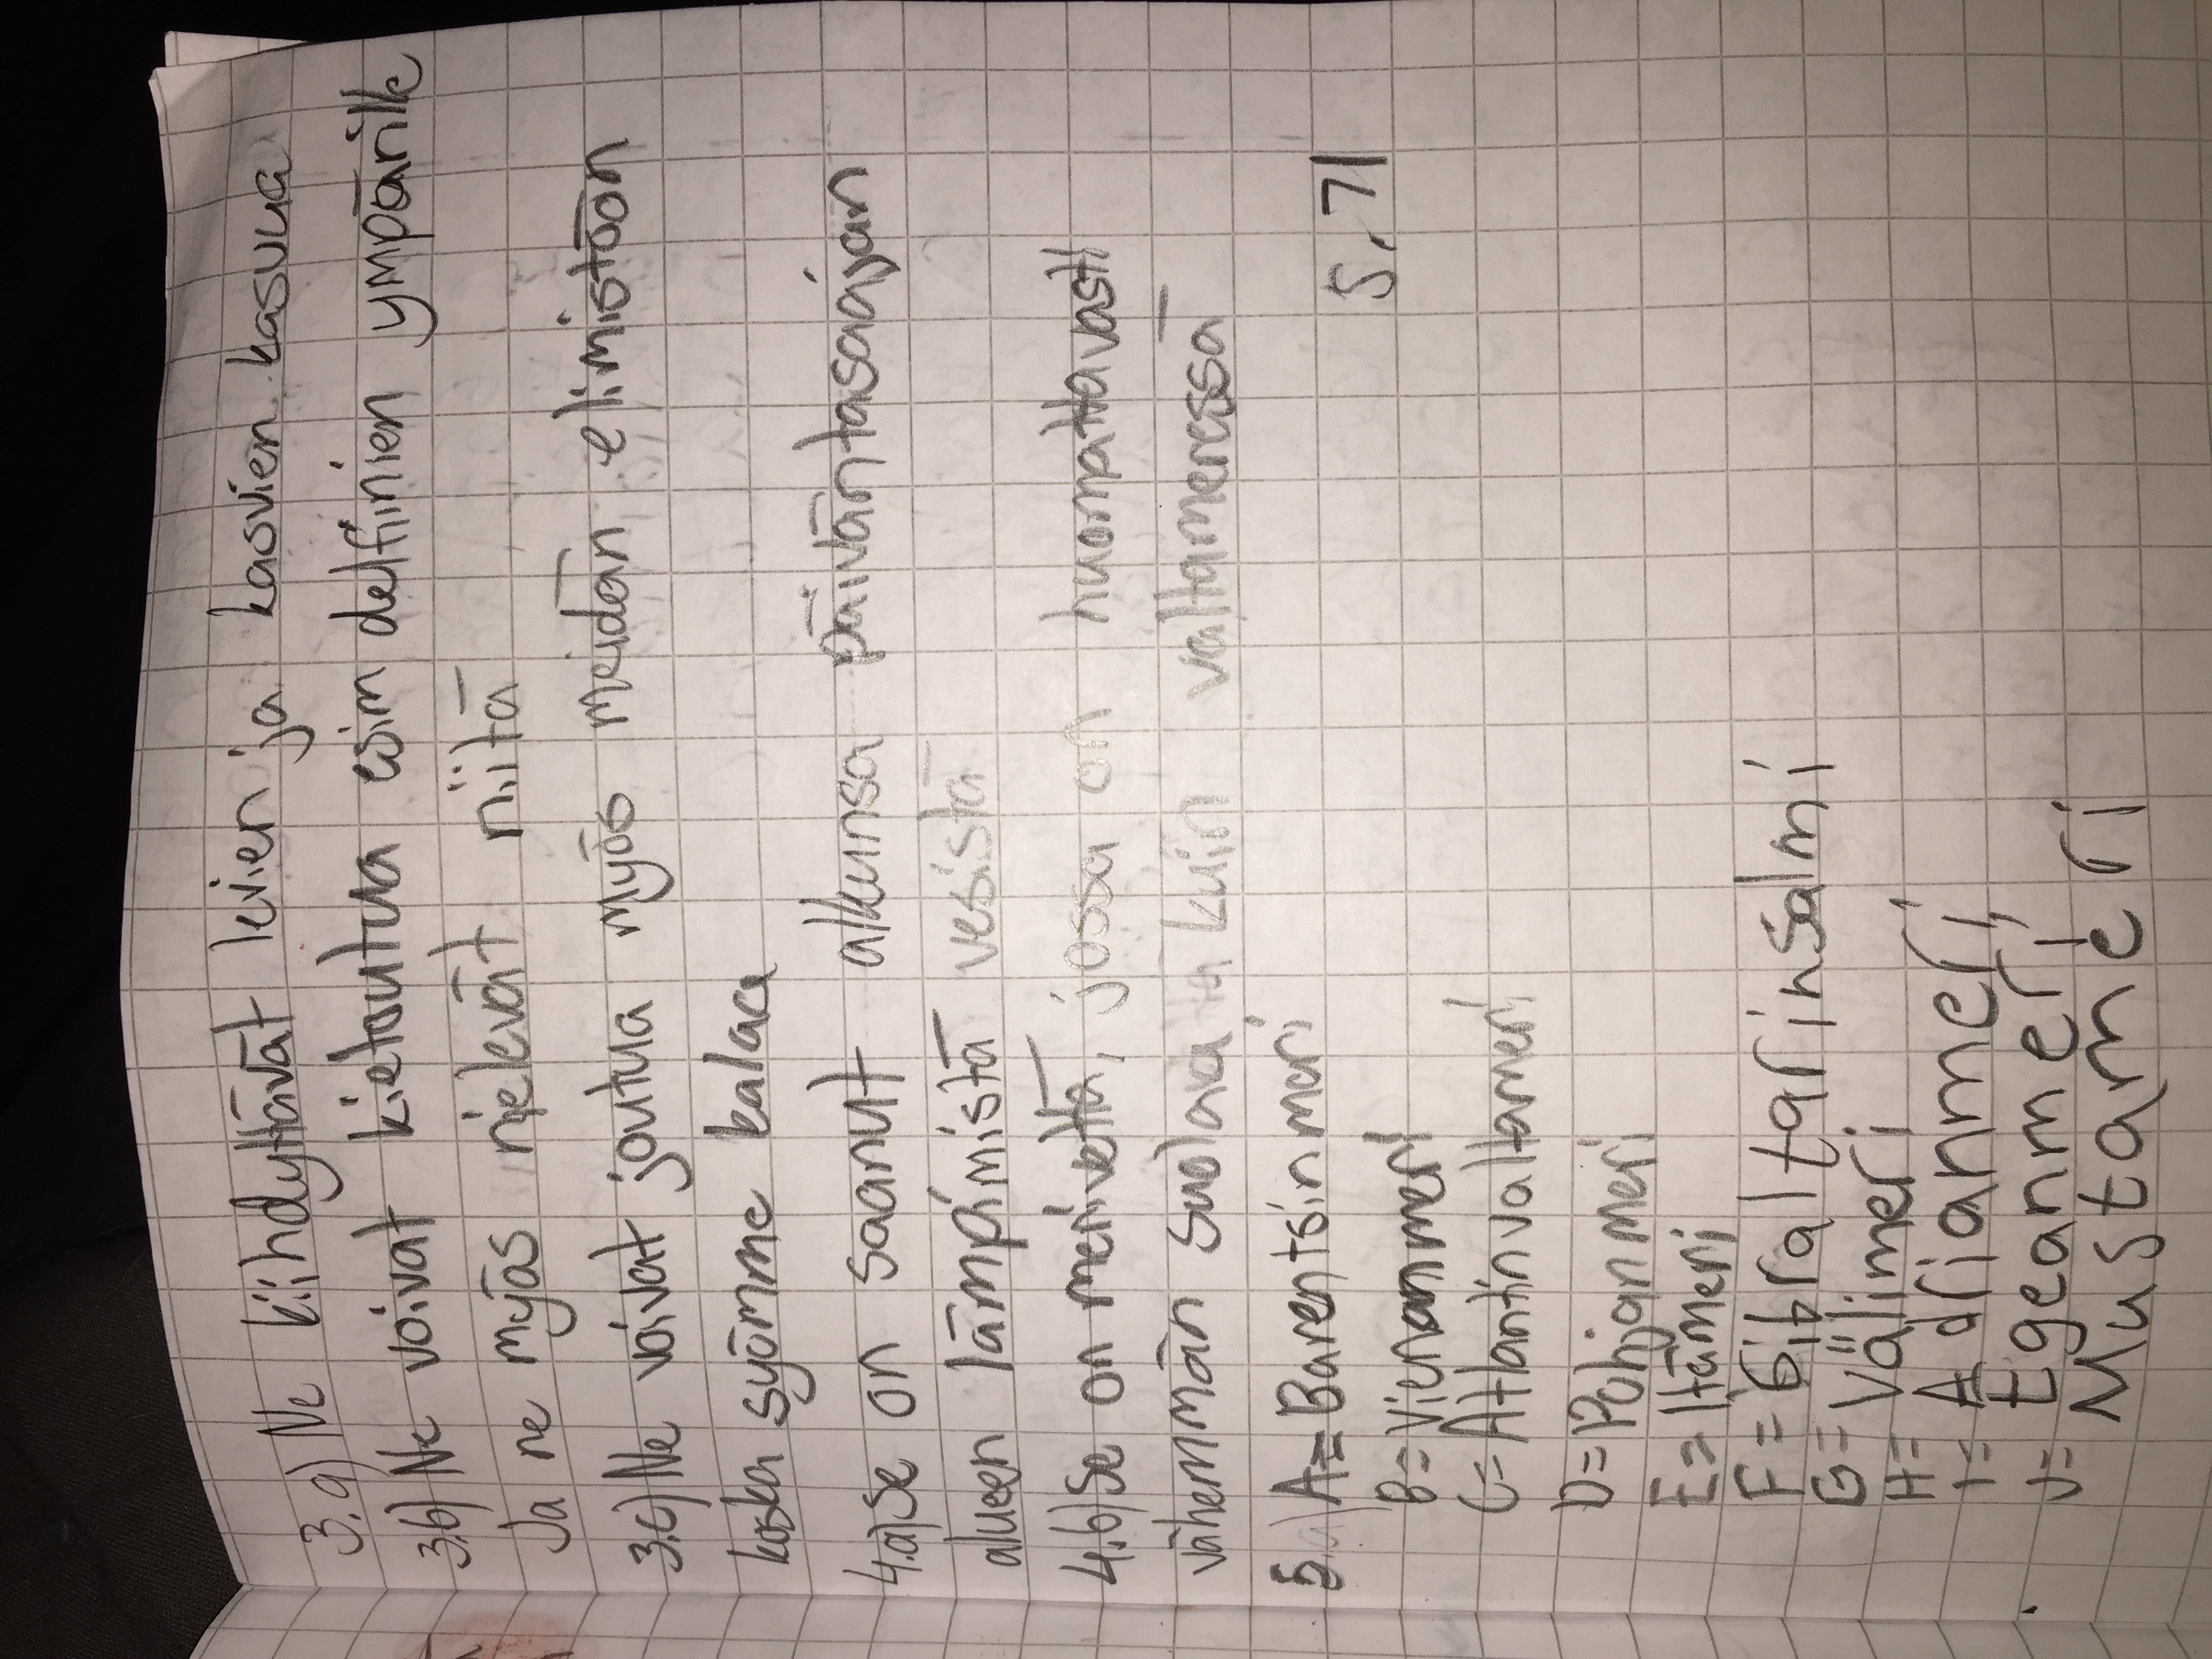 3.a) Ne kiihdyttävät levien ja kasvien kasvua
3.b) Ne voivat kietoutua esim delfiinien ympärille
Ja ne myös nielevät niitä
3.c) Ne voivat joutua myös meidän elimistöön
koska syömme kalaa
4.a) Se on saanut alkunsa päiväntasaajan
alueen lämpimistä vesistä
4.b) Se on merivettä, jossa on huomattavasti
vähemmän suolaa kuin valtameressä
5.a) A= Barentsinmeri
S. 71
B= Vienanmeri
C= Atlantinvaltameri
D= Pohjanmeri
E= Itämeri
F= Gibraltarinsalmi
G= Välimeri
H= Adrianmeri
I= Egeanmeri
J= Mustameri